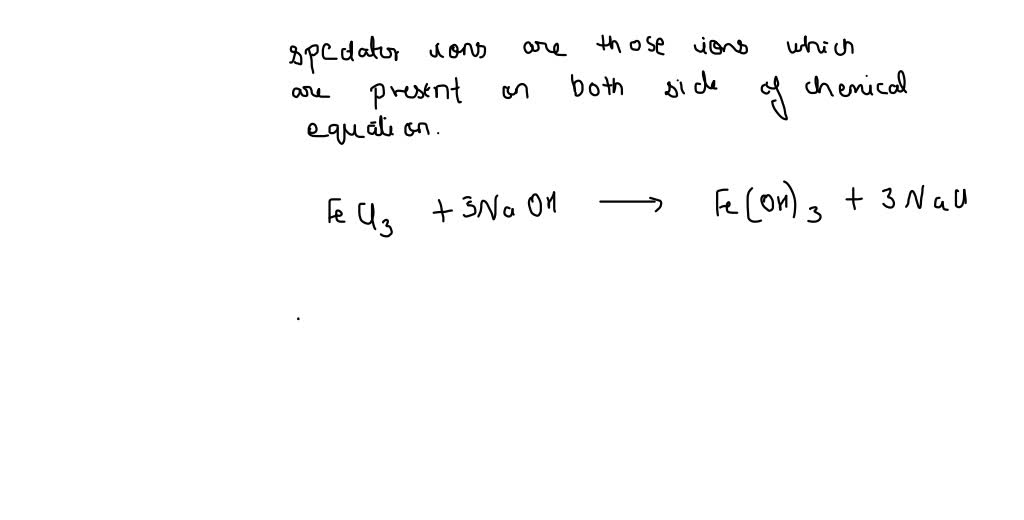 spectator ions are those ions which
are present on both side of chemical
equation.
FeCl3 + 3NaOH → Fe(OH)3 + 3NaCl